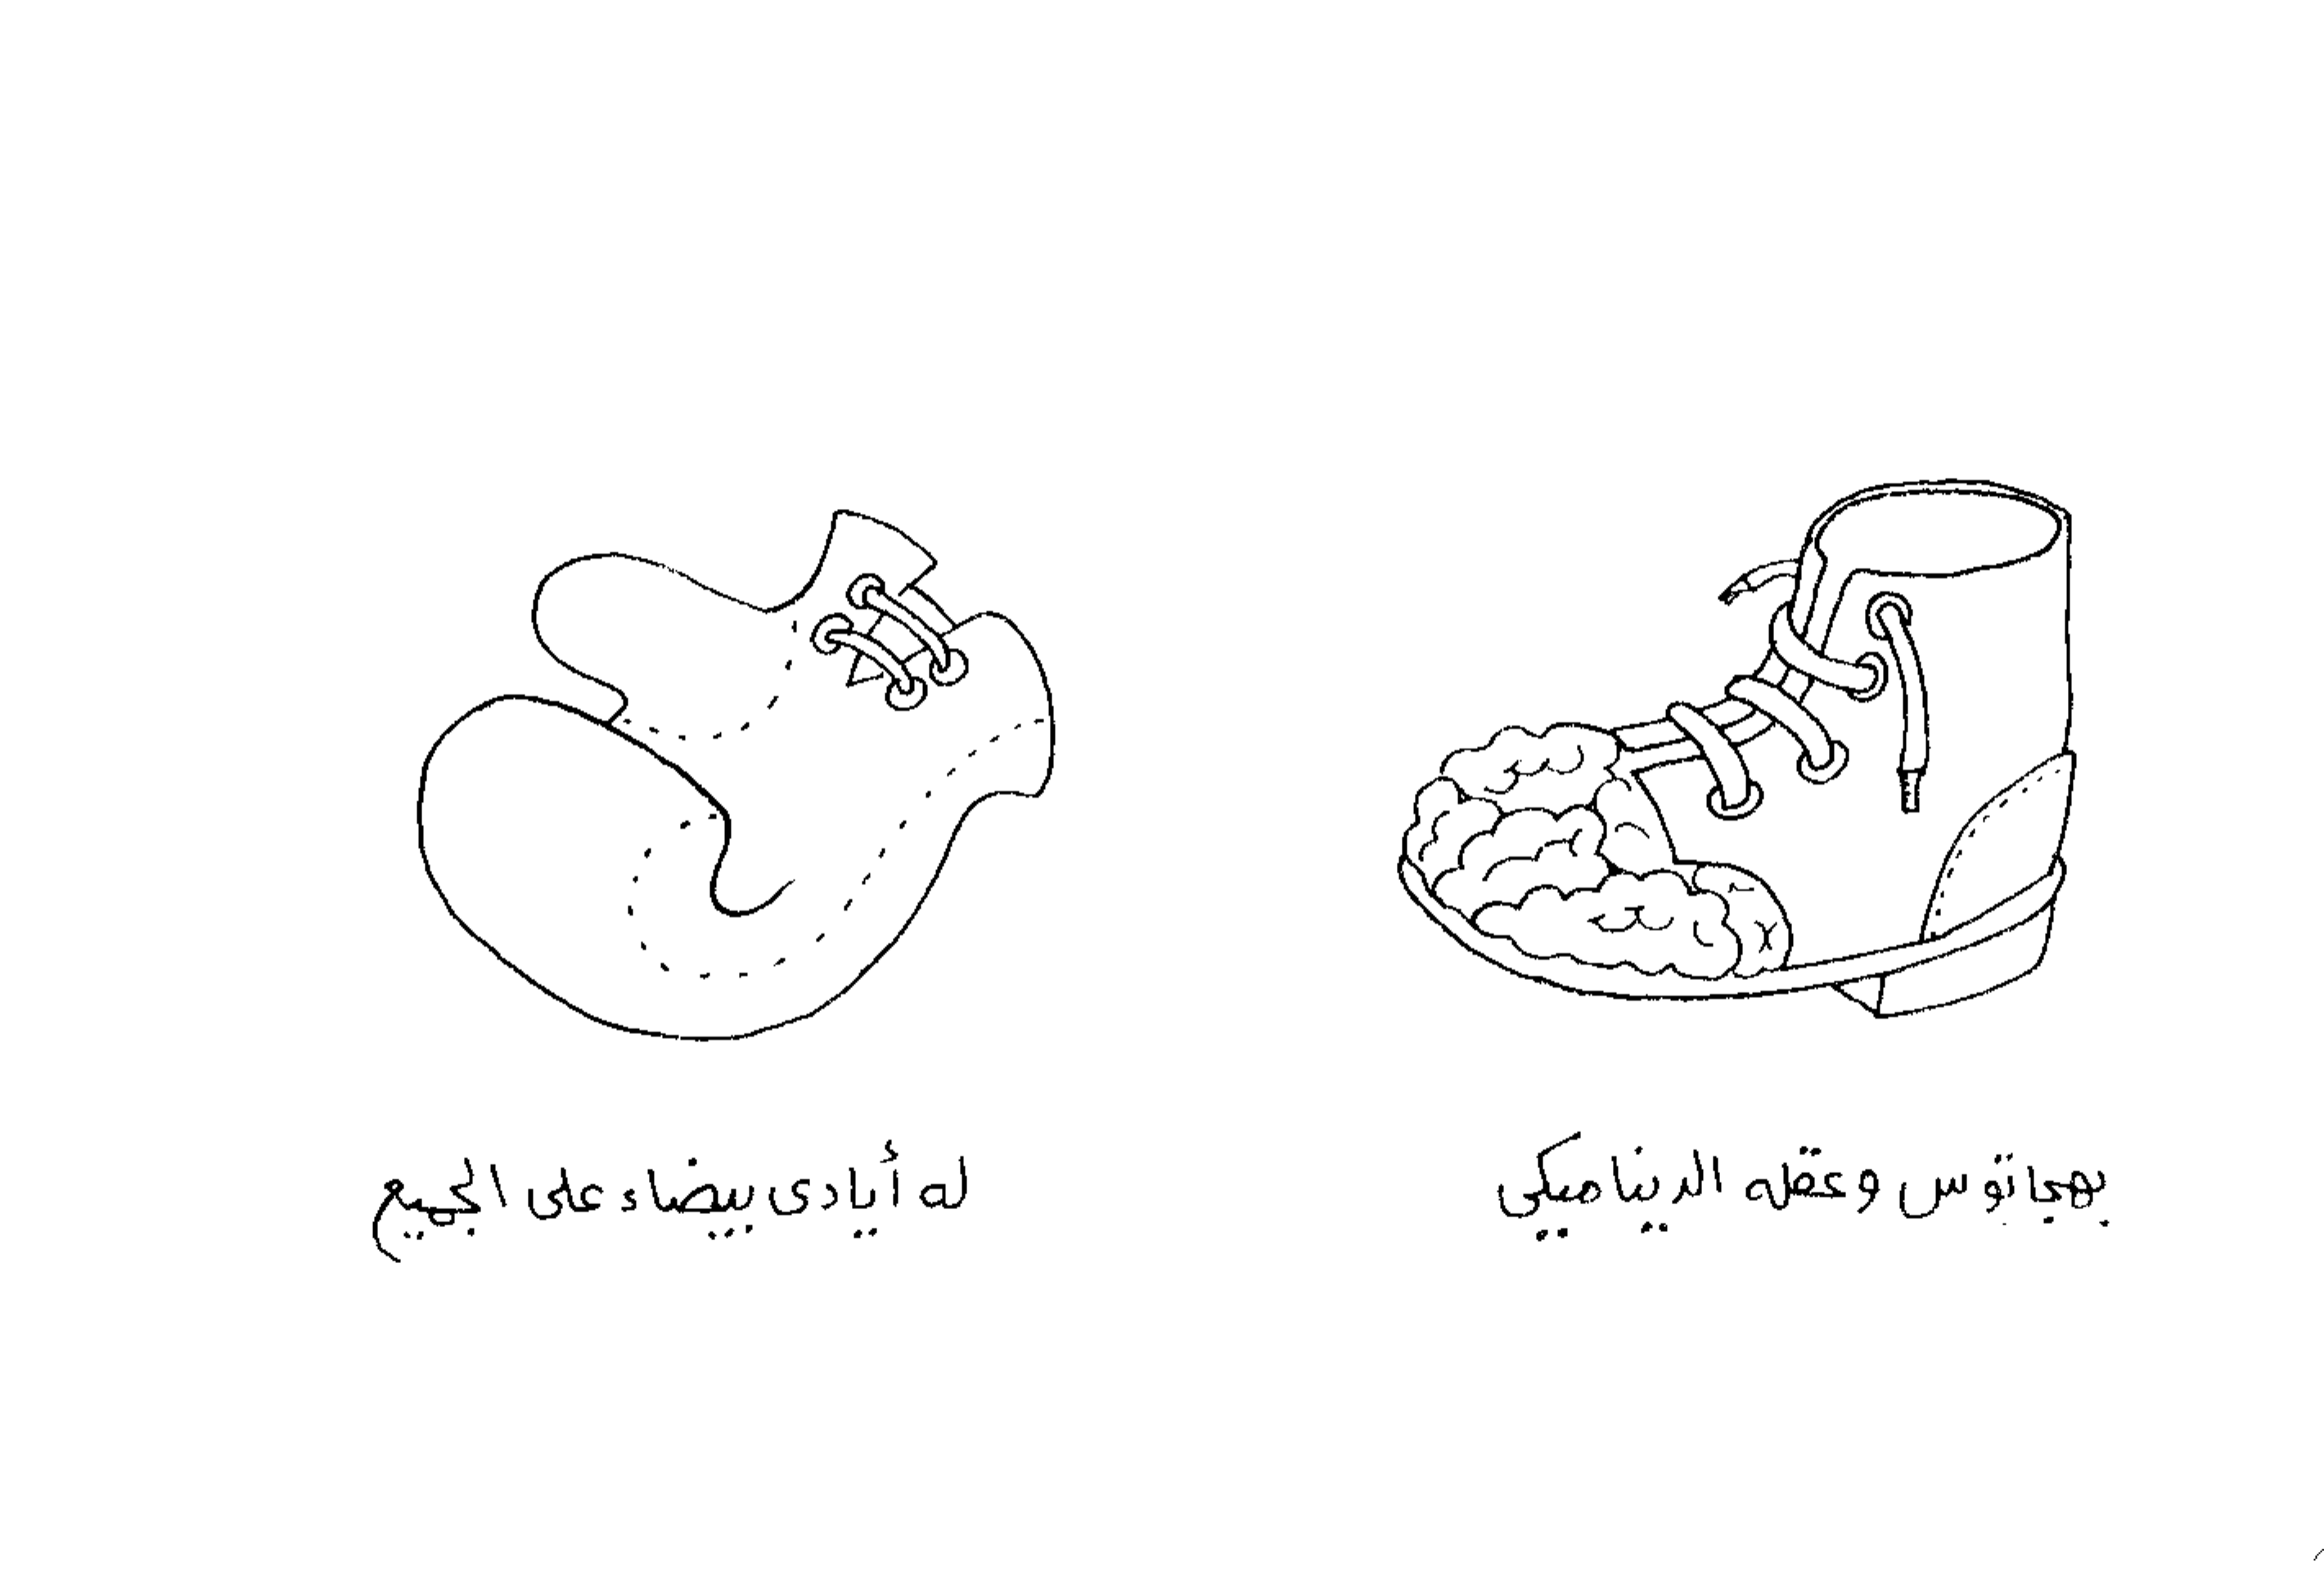 بهجاتوس وعقله الديناميكي
له أيادى بيضاء على الجميع